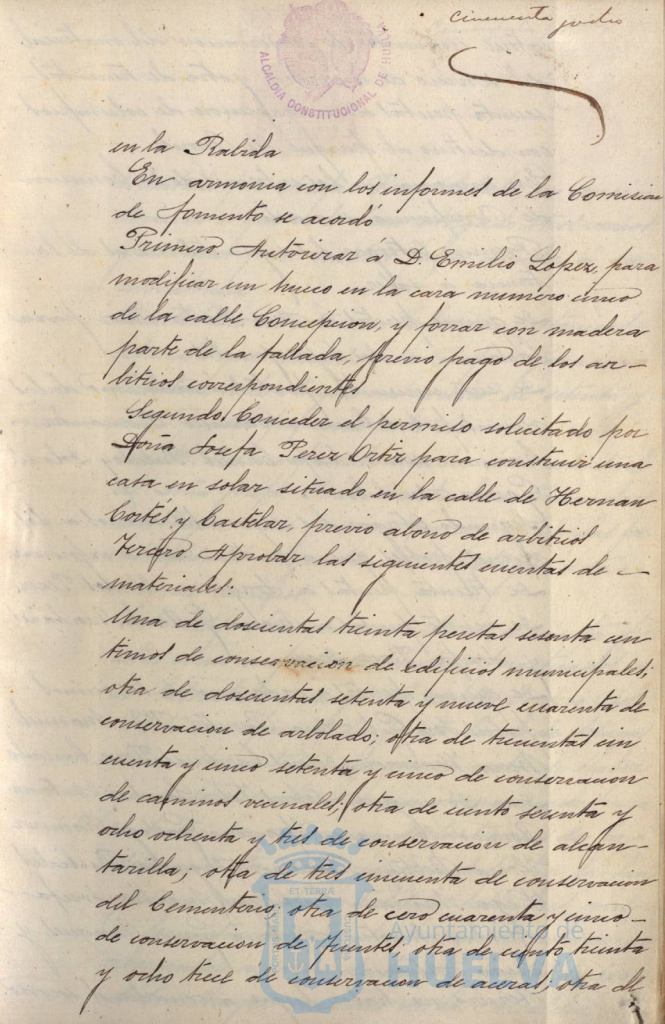 cincuenta y ocho
ALCALDIA CONSTITUCIONAL DE HUELVA
en la Rabida
En armonia con los informes de la Comision
de fomento se acordó
Primero. Autorizar á D. Emilio Lopez, para
modificar un hueco en la casa numero cinco
de la calle Concepcion, y forrar con madera
parte de la fallada, previo pago de los ar-
bitrios correspondientes
Segundo. Conceder el permiso solicitado por
Doña Josefa Perez Ortiz para construir una
casa en solar situado en la calle de Hernan
Cortés y Castelar, previo abono de arbitrios
Tercero Aprobar las siguientes cuentas de —
materiales:
Una de doscientas treinta pesetas sesenta cen
timos de conservacion de edificios municipales;
otra de doscientas setenta y nueve cuarenta de
conservacion de arbolado; otra de trescientas cin
cuenta y cinco setenta y cinco de conservacion
de caminos vecinales; otra de ciento sesenta y
ocho ochenta y tres de conservacion de alcan-
tarilla; otra de tres cincuenta de conservacion
del Cementerio; otra de cero cuarenta y cinco -
de conservacion de fuentes; otra de ciento treinta
y ocho trece de conservacion de aceras; otra de
ET TERRÆ
Ayuntamiento de
HUELVA